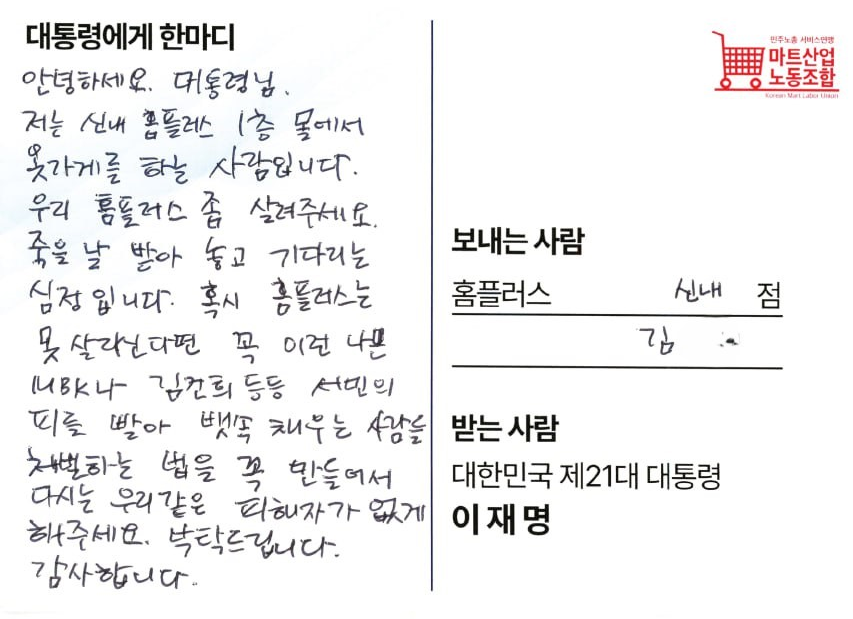 대통령에게 한마디
안녕하세요. 대통령님.
저는 신내 홈플러스 1층 몰에서
옷가게를 하는 사람입니다.
우리 홈플러스 좀 살려주세요.
죽을 날 받아 놓고 기다리는
심정입니다. 혹시 홈플러스는
못살리신다면 꼭 이런 나쁜
MBK나 김건희 등등 서민의
피를 빨아 뱃속 채우는 사람들
처벌하는 법을 꼭 만들어서
다시는 우리같은 피해자가 없게
해주세요. 부탁드립니다.
감사합니다.
민주노총 서비스연맹
마트산업
노동조합
Korean Mart Labor Union
보내는 사람
홈플러스 신내 점
김
받는 사람
대한민국 제21대 대통령
이재명